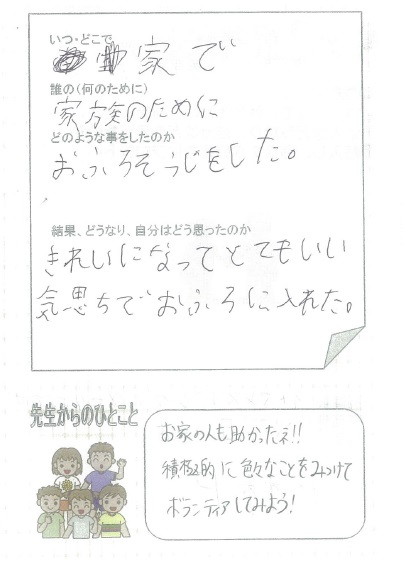 いつ・どこで
家で
誰の(何のために)
家族のために
どのような事をしたのか
おふろそうじをした。
結果、どうなり、自分はどう思ったのか
きれいになってとてもいい
気思ちでおふろに入れた。
先生からのひとこと
お家の人も助かったネ!!
積極的に色々なことをみつけて
ボランティアしてみよう!